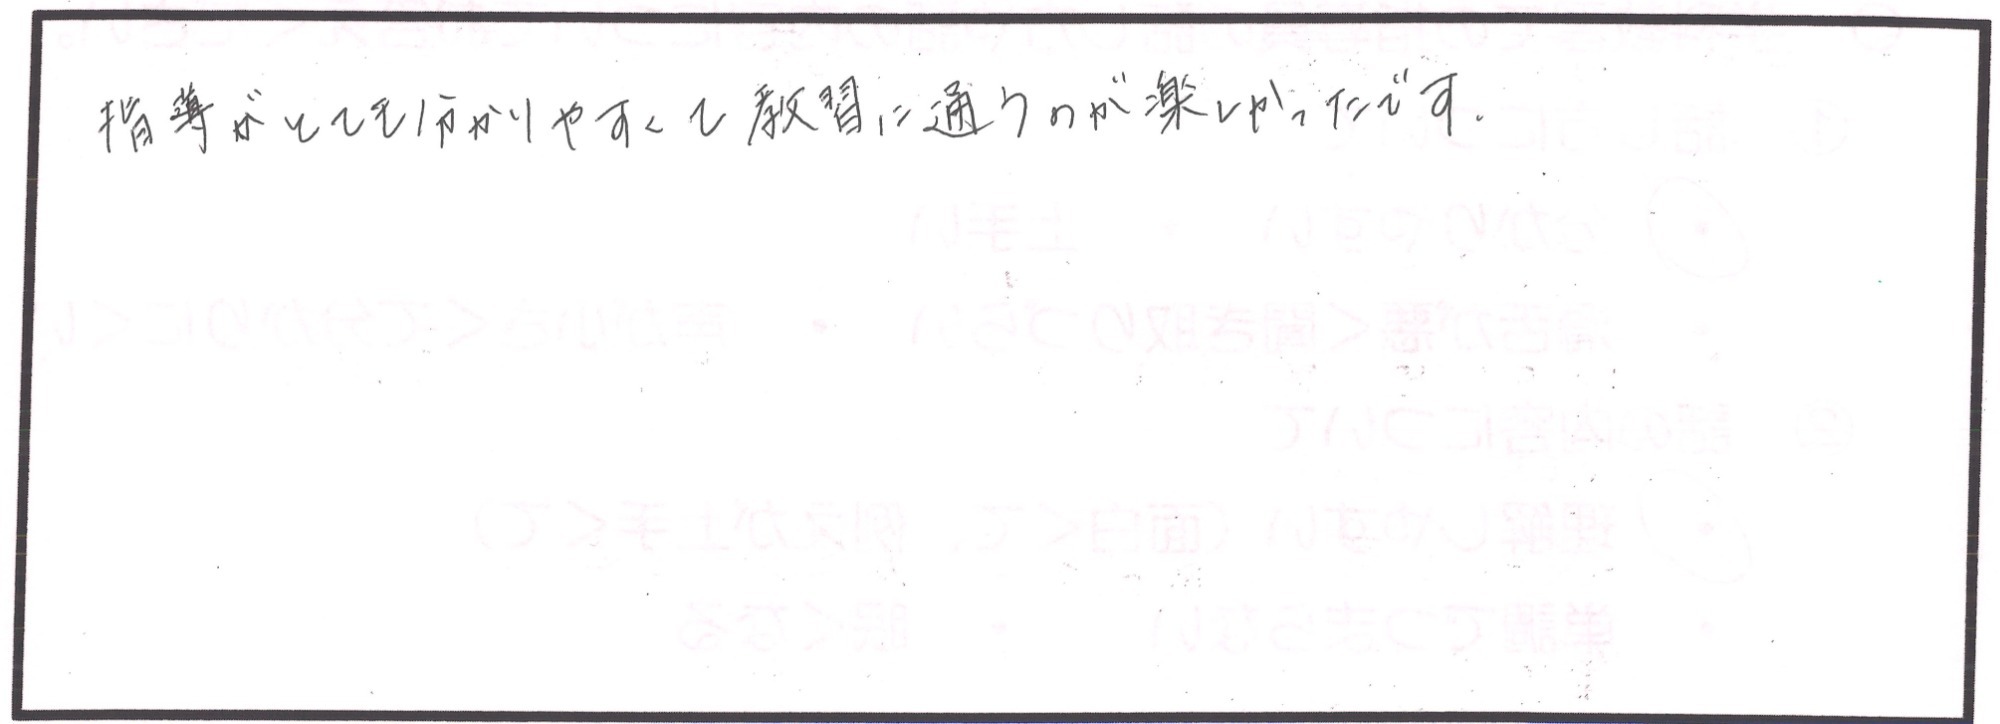 指導がとても分かりやすくて教習に通うのが楽しかったです.